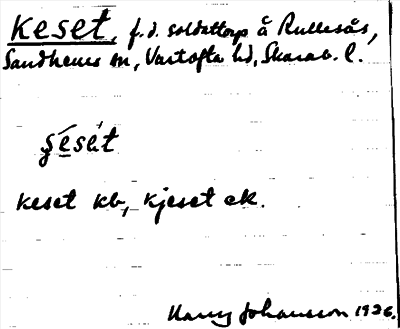 Keset, f.d. soldattorp å Rullesås,
Sandhems sn, Vartofta hd, Skarab. l.
śesét
keset kb, kjeset ek.
Harry Johansson 1926.